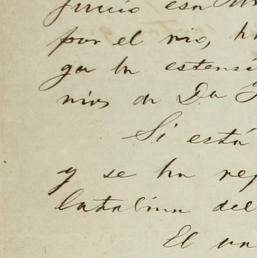 juicio esa
por el rio,
ga la estensi
nios de Da
Si está
y se ha rep
Catalina del
El